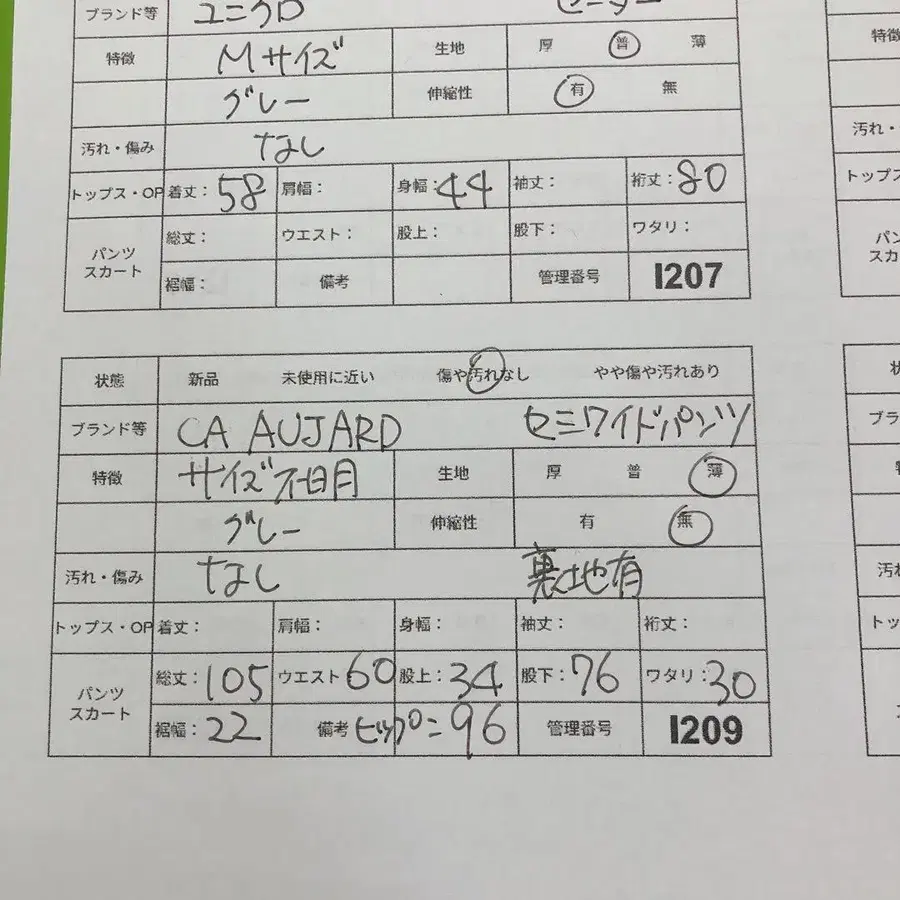 ブランド等 ユニクロ セーター
特徴 Mサイズ 生地 厚 普 薄
グレー 伸縮性 有 無
汚れ・傷み なし
トップス・OP 着丈: 58 肩幅: 身幅: 44 袖丈: 裄丈: 80
パンツ スカート 総丈: ウエスト: 股上: 股下: ワタリ:
裾幅: 備考 管理番号 I207
状態 新品 未使用に近い 傷や汚れなし やや傷や汚れあり
ブランド等 CA AUJARD セミワイドパンツ
特徴 サイズ不明 生地 厚 普 薄
グレー 伸縮性 有 無
汚れ・傷み なし 裏地有
トップス・OP 着丈: 肩幅: 身幅: 袖丈: 裄丈:
パンツ スカート 総丈: 105 ウエスト 60 股上: 34 股下: 76 ワタリ: 30
裾幅: 22 備考 ヒップ=96 管理番号 I209
特徴
汚れ・
トップス
パン
スカ
状
ブラ
汚れ
トッ